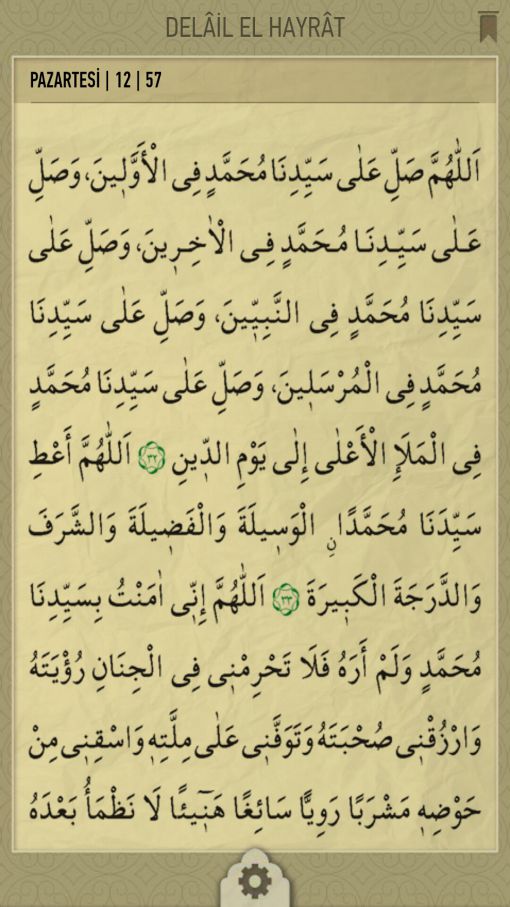 DELÂİL EL HAYRÂT
PAZARTESİ | 12 | 57
اَللّٰهُمَّ صَلِّ عَلٰى سَيِّدِنَا مُحَمَّدٍ فِى الْأَوَّلٖينَ، وَصَلِّ
عَلٰى سَيِّدِنَا مُحَمَّدٍ فِى الْاٰخِرٖينَ، وَصَلِّ عَلٰى
سَيِّدِنَا مُحَمَّدٍ فِى النَّبِيّٖينَ، وَصَلِّ عَلٰى سَيِّدِنَا
مُحَمَّدٍ فِى الْمُرْسَلٖينَ، وَصَلِّ عَلٰى سَيِّدِنَا مُحَمَّدٍ
فِى الْمَلَإِ الْأَعْلٰى إِلٰى يَوْمِ الدّٖينِ ٣٢ اَللّٰهُمَّ أَعْطِ
سَيِّدَنَا مُحَمَّدًا نِ الْوَسٖيلَةَ وَالْفَضٖيلَةَ وَالشَّرَفَ
وَالدَّرَجَةَ الْكَبٖيرَةَ ٣٣ اَللّٰهُمَّ إِنّٖى اٰمَنْتُ بِسَيِّدِنَا
مُحَمَّدٍ وَلَمْ أَرَهُ فَلَا تَحْرِمْنٖى فِى الْجِنَانِ رُؤْيَتَهُ
وَارْزُقْنٖى صُحْبَتَهُ وَتَوَفَّنٖى عَلٰى مِلَّتِهٖ وَاسْقِنٖى مِنْ
حَوْضِهٖ مَشْرَبًا رَوِيًّا سَائِغًا هَنٖٓيئًا لَا نَظْمَأُ بَعْدَهُ